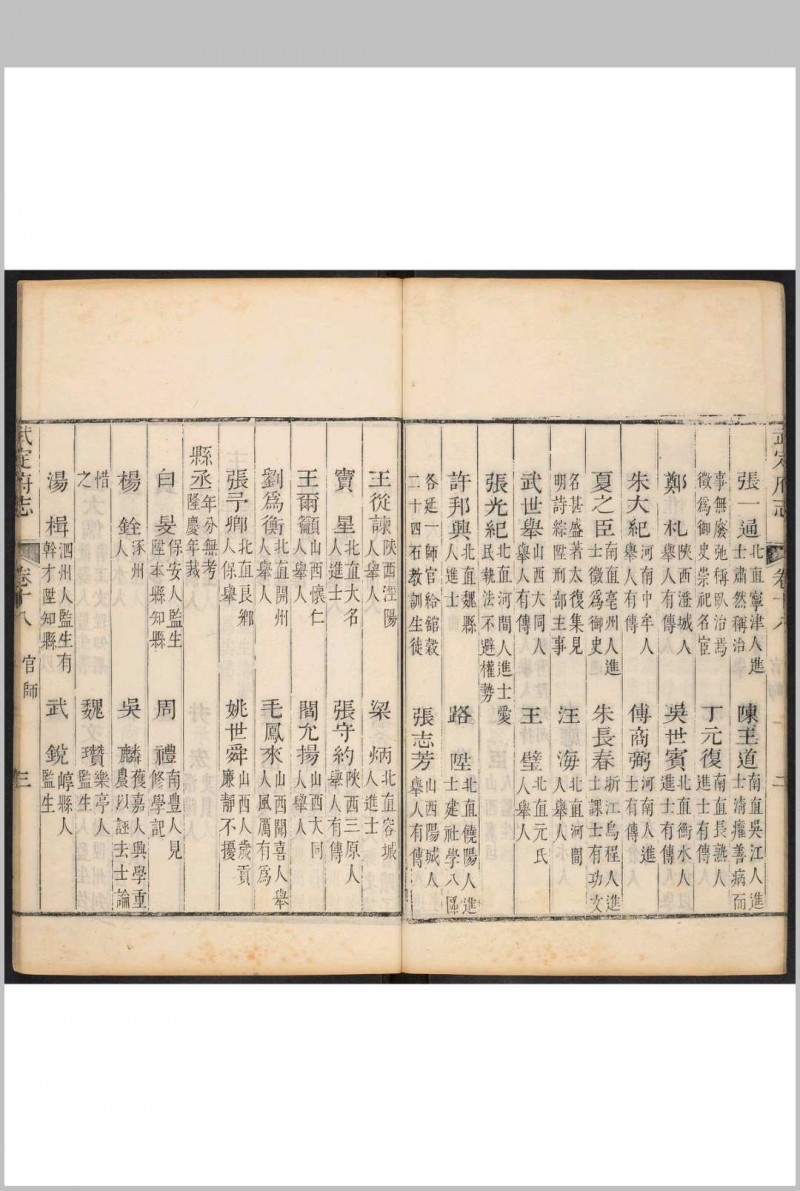 武定府志 卷十八 二
張一通 北直寧津人進士肅然稱治 陳王道 南直吳江人進士清癯善病而
事無廢弛稱臥治焉徵為御史崇祀名宦 丁元復 南直長熟人進士有傳
鄭札 陝西澄城人舉人有傳 吳世賓 北直衡水人進士有傳
朱大紀 河南中牟人舉人有傳 傅商弼 河南人進士有傳
夏之臣 南直亳州人進士徵為御史 朱長春 浙江烏程人進士課士有功文
名甚盛著太復集見明詩綜陞刑部主事 汪海 北直河間人舉人
武世舉 山西大同人舉人有傳 王璧 北直元氏人舉人
張光紀 北直河間人進士愛民執法不避權勢
許邦興 北直魏縣人進士 路陞 北直饒陽人進士建社學八區
各延一師官給舘穀二十四石教訓生徒 張志芳 山西陽城人舉人有傳
王從諫 陝西涇陽人舉人 梁炳 北直容城人進士
竇星 北直大名人進士 張守約 陝西三原人舉人有傳
王爾籲 山西懷仁人舉人 閻尤揚 山西大同人舉人
劉為衡 北直開州人舉人 毛鳳來 山西聞喜人舉人風厲有為
張予卿 北直良鄉人保舉 姚世舜 山西人歲貢廉靜不擾
縣丞 年分無考隆慶年裁
白旻 保安人監生陞本縣知縣 周禮 南豊人見修學記
楊銓 涿州人 吳麟 獲嘉人興學重農以誣去士論
惜之 魏瓚 樂亭人監生
湯楫 泗州人監生有幹才陞知縣 武銳 崞縣人監生
武定府志 卷十八 官師 三